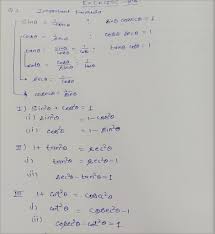 Important formula
Sinθ = 1/cosecθ ; sinθ cosecθ = 1
cosθ = 1/secθ ; cosθ secθ = 1
tanθ = sinθ/cosθ = 1/cotθ ; tanθ cotθ = 1
cotθ = cosθ/sinθ = 1/tanθ
secθ = 1/cosθ
cosecθ = 1/sinθ
I) Sin²θ + cos²θ = 1
(i) sin²θ = 1 - cos²θ
(ii) cos²θ = 1 - sin²θ
II) 1 + tan²θ = sec²θ
(i) tan²θ = sec²θ - 1
(ii) sec²θ - tan²θ = 1
III 1 + cot²θ = cosec²θ
(i) cot²θ = cosec²θ - 1
(ii) cosec²θ - cot²θ = 1